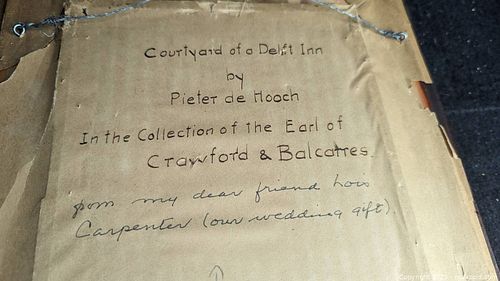 Courtyard of a Delft Inn
by
Pieter de Hooch
In the Collection of the Earl of
Crawford & Balcarres.
from my dear friend Lois
Carpenter (our wedding gift).